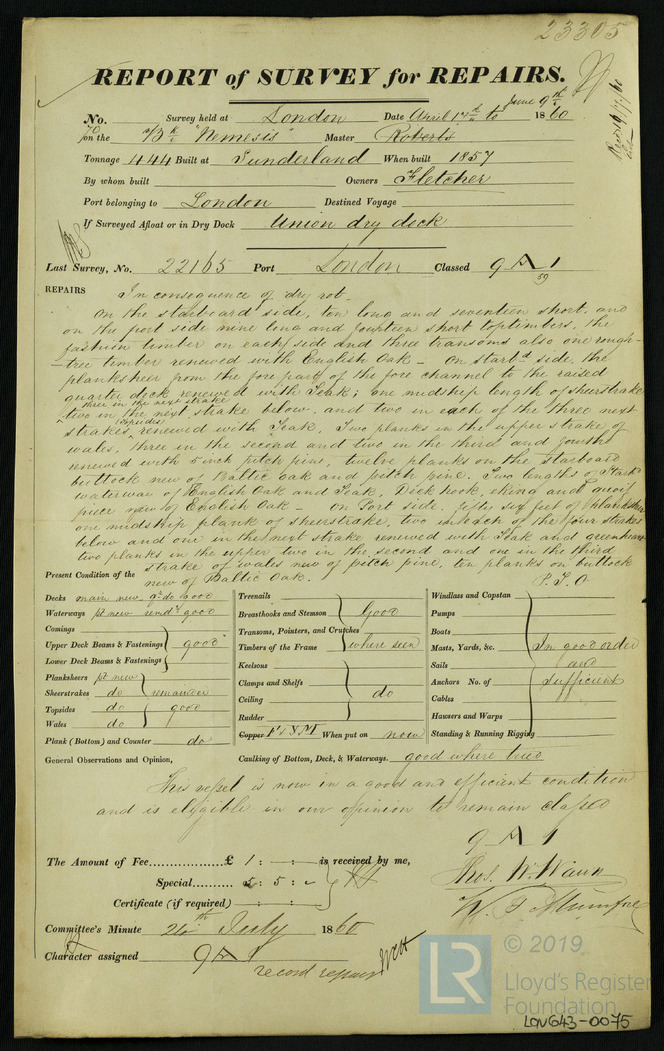 23305
REPORT of SURVEY for REPAIRS.
No. Survey held at London Date April 17th to June 9th 1860
on the "Nemesis" Master Roberts
Tonnage 444 Built at Sunderland When built 1857
By whom built Owners Fletcher
Port belonging to London Destined Voyage
If Surveyed Afloat or in Dry Dock Union dry dock
Last Survey, No. 22165 Port London Classed 9 A 1
59
REPAIRS In consequence of dry rot.
On the starboard side, ten long and seventeen short, and
on the port side nine long and fourteen short toptimbers, the
fashion timber on each side and three transoms also one rough-
-tree timber renewed with English Oak - On starbd side, the
planksheer from the fore part of the fore channel to the raised
quarter deck renewed with Teak; one midship length of sheerstrake
three in the next strake
two in the next strake below, and two in each of the three next
strakes (topsides) renewed with Teak. Two planks in the upper strake of
wales, three in the second and two in the third and fourth
renewed with 5 inch pitch pine, twelve planks on the Starboard
buttock new of Baltic Oak and pitch pine. Two lengths of Starbd
waterway of English Oak and Teak, Deck hook, ekeing and
piece new of English Oak - On Port side, fifty six feet of planksheer
one midship plank of sheerstrake, two in each of the four strakes
below and one in the next strake renewed with Teak and greenheart
two planks in the upper two in the second and one in the third
strake of wales new of pitch pine, ten planks on buttock
new of Baltic Oak. P.T.O
Present Condition of the
Decks main new qr do good
Waterways pt new remdr good
Comings
Upper Deck Beams & Fastenings good
Lower Deck Beams & Fastenings
Planksheers pt new
Sheerstrakes do remainder
Topsides do good
Wales do
Plank (Bottom) and Counter do
Treenails
Breasthooks and Stemson Good
Transoms, Pointers, and Crutches
Timbers of the Frame where seen
Keelsons
Clamps and Shelfs
Ceiling do
Rudder
Copper FYSM When put on now
Windlass and Capstan
Pumps
Boats
Masts, Yards, &c. In good order
Sails and
Anchors No. of Sufficient
Cables
Hausers and Warps
Standing & Running Rigging
General Observations and Opinion, Caulking of Bottom, Deck, & Waterways. good where tried
This vessel is now in a good and efficient condition
and is eligible in our opinion to remain classed
9 A 1
The Amount of Fee..............£ 1 : - : - is received by me,
Special......... £ 5 : 5 : -
Certificate (if required)
Thos. W. Wawn
W. T. Mumford
Committee's Minute July 1860
Character assigned 9 A 1
record repairs
© 2019
LR
Lloyd's Register
Foundation
LON643-0075